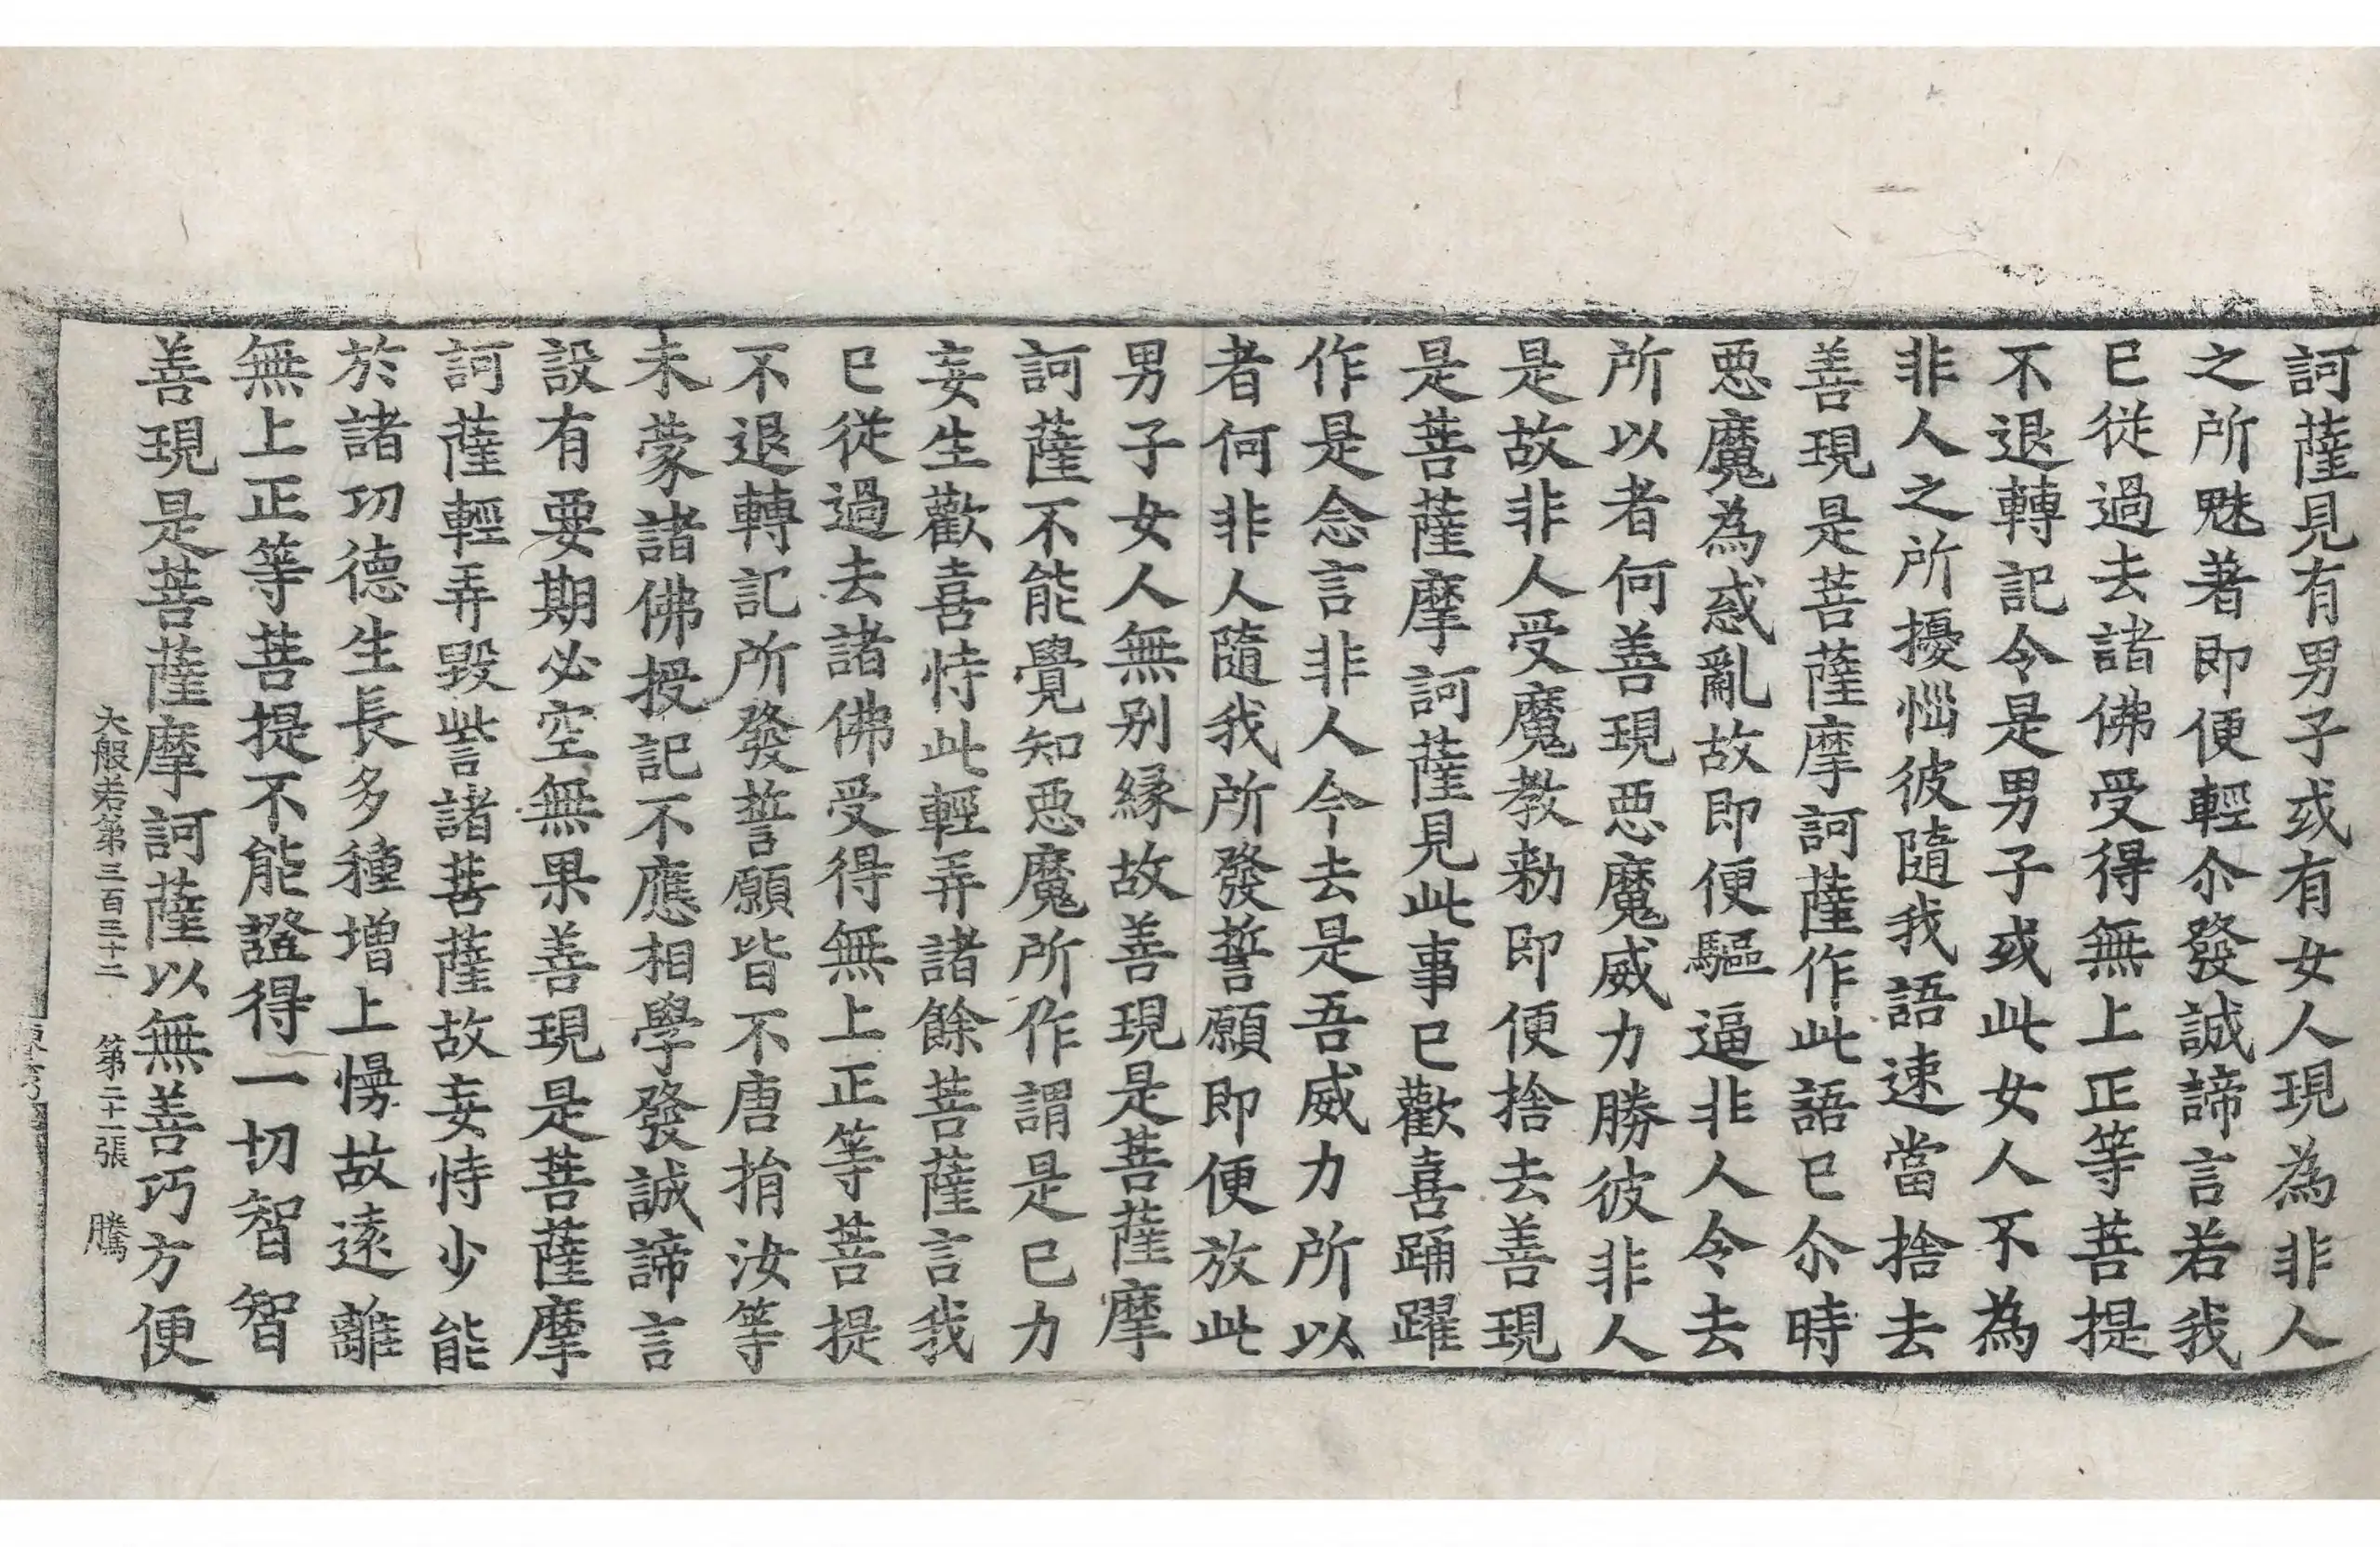 訶薩見有男子或有女人現為非人
之所魅著即便輕尒發誠諦言若我
已從過去諸佛受得無上正等菩提
不退轉記令是男子或此女人不為
非人之所擾惱彼隨我語速當捨去
善現是菩薩摩訶薩作此語已尒時
惡魔為惑亂故即便驅逼非人令去
所以者何善現惡魔威力勝彼非人
是故非人受魔教勑即便捨去善現
是菩薩摩訶薩見此事已歡喜踊躍
作是念言非人今去是吾威力所以
者何非人隨我所發誓願即便放此
男子女人無別緣故善現是菩薩摩
訶薩不能覺知惡魔所作謂是己力
妄生歡喜恃此輕弄諸餘菩薩言我
已從過去諸佛受得無上正等菩提
不退轉記所發誓願皆不唐捐汝等
未蒙諸佛授記不應相學發誠諦言
設有要期必空無果善現是菩薩摩
訶薩輕弄毀訾諸菩薩故妄恃少能
於諸功德生長多種增上慢故遠離
無上正等菩提不能證得一切智智
善現是菩薩摩訶薩以無善巧方便
大般若第三百三十二 第二十一張 騰